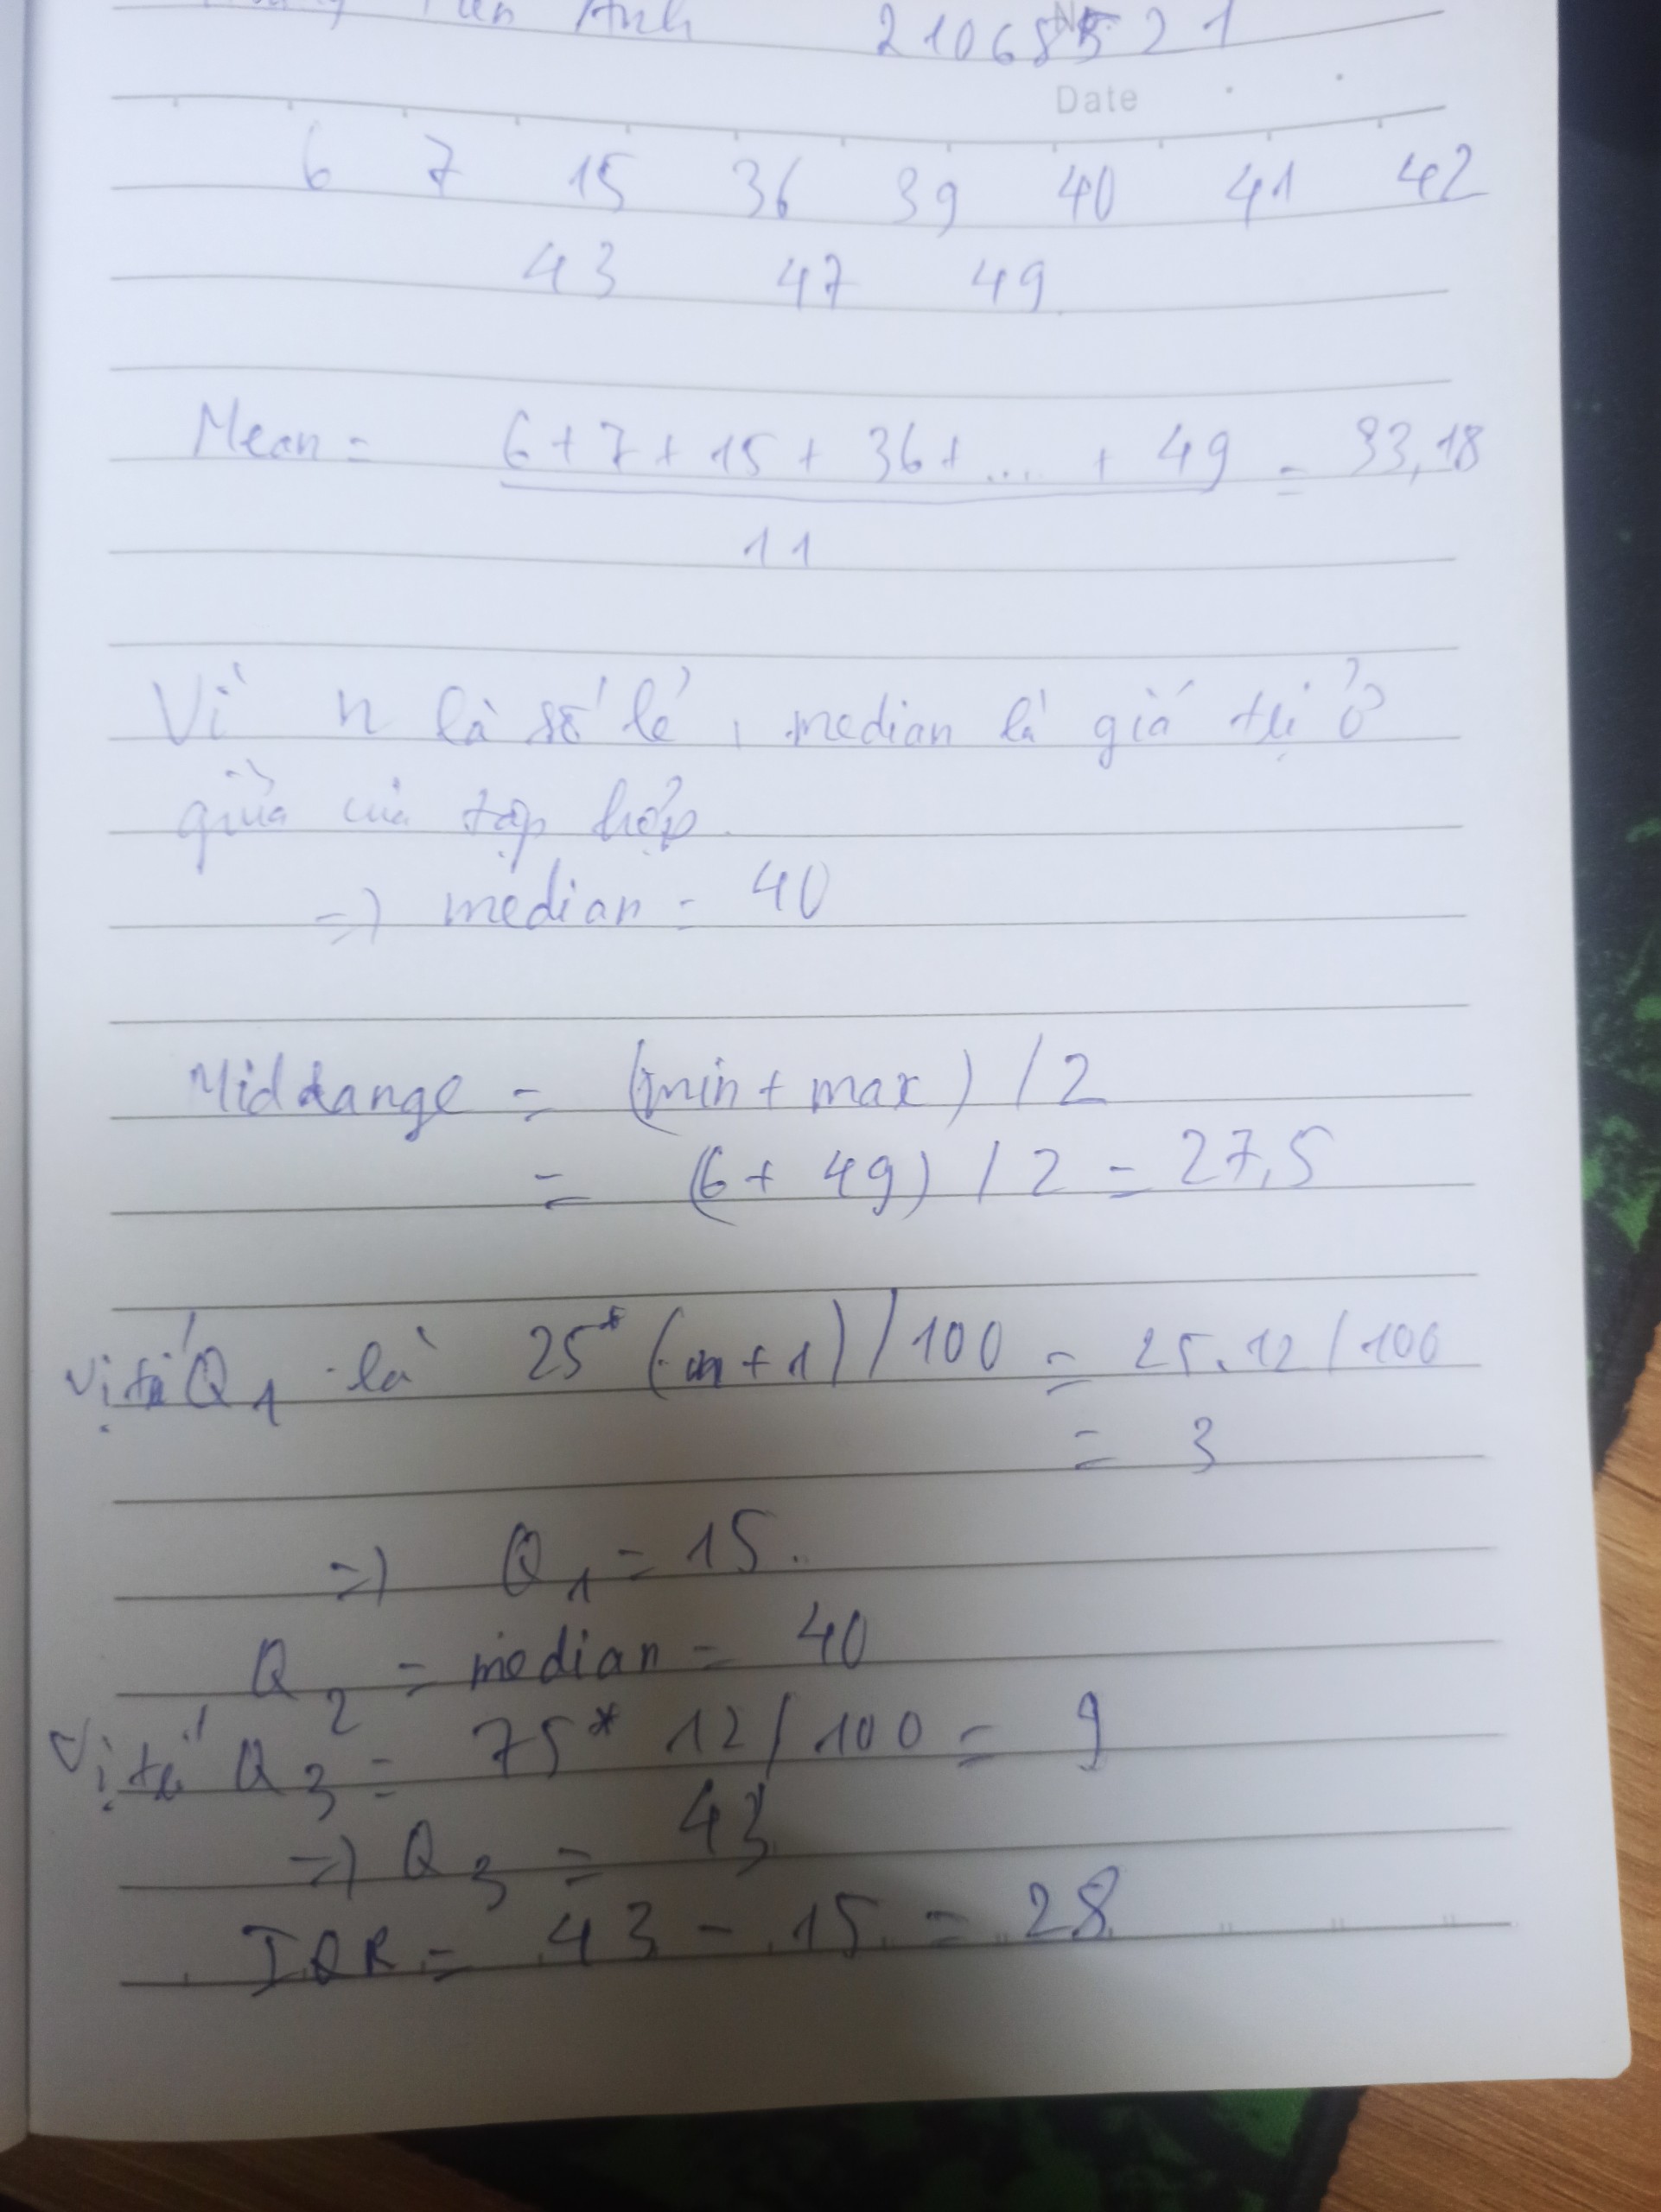 Anh 21068521
No.
Date
6 7 15 36 39 40 41 42
43 47 49
Mean = 6 + 7 + 15 + 36 + .... + 49 = 33,18
11
Vì n là số lẻ, median là giá trị ở
giữa của tập hợp.
=> median = 40
Midrange = (min + max) / 2
= (6 + 49) / 2 = 27,5
Vị trí Q1 là 25* (n + 1) / 100 = 25.12 / 100
= 3
=> Q1 = 15.
Q2 = median = 40
Vị trí Q3 = 75* 12 / 100 = 9
=> Q3 = 43
IQR = 43 - 15 = 28